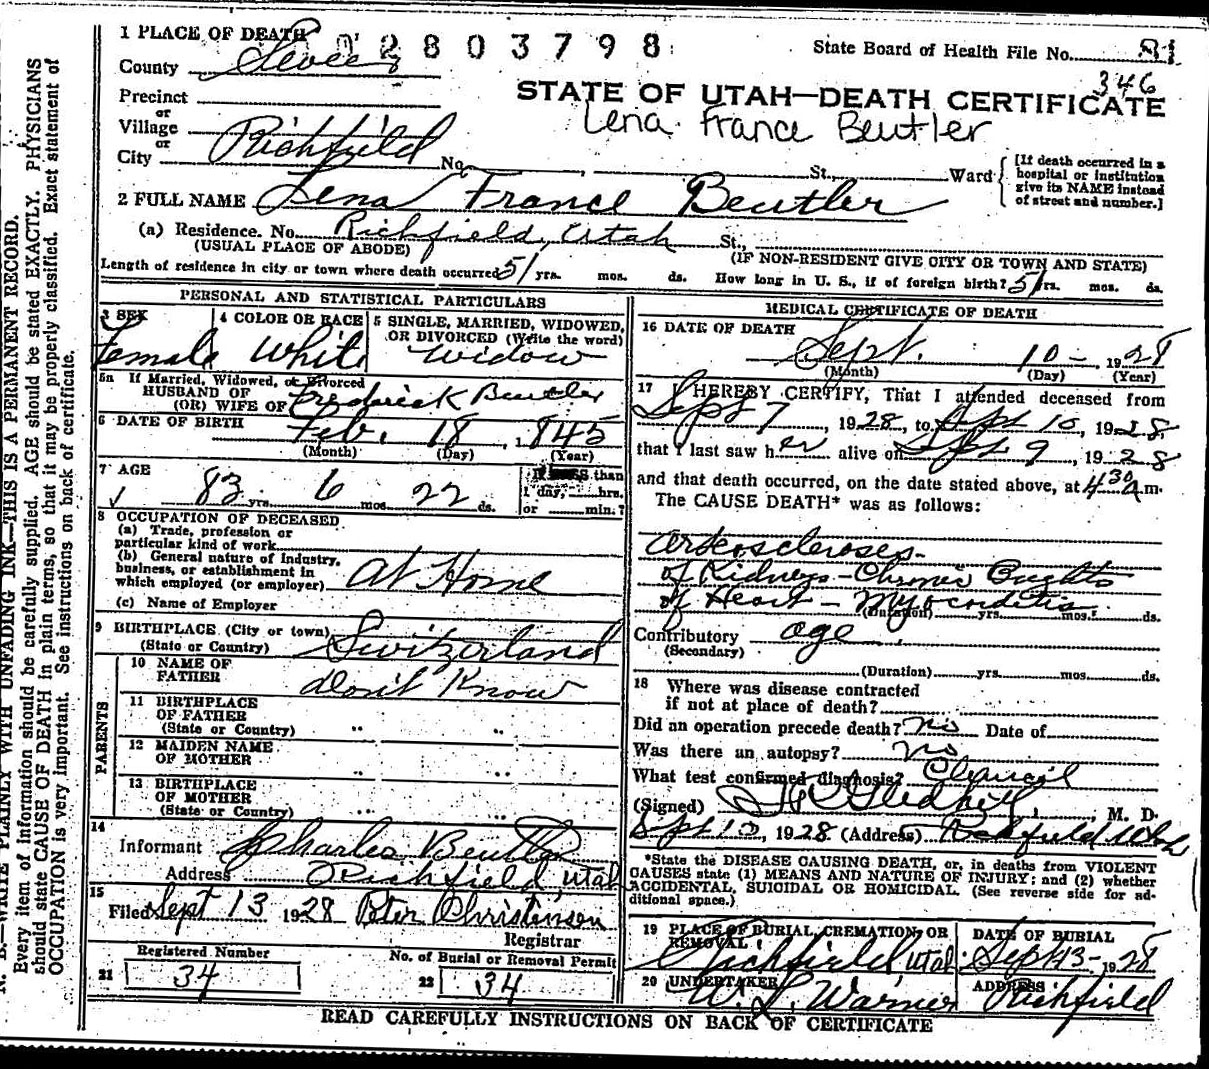 1 PLACE OF DEATH 02803798 State Board of Health File No. 81
County Sevier 346
STATE OF UTAH—DEATH CERTIFICATE
Precinct
or
Village
or
Lena France Beutler
City Richfield No. St., Ward
[If death occurred in a
hospital or institution
give its NAME instead
of street and number.]
2 FULL NAME Lena France Beutler
(a) Residence. No. Richfield, Utah St.,
(USUAL PLACE OF ABODE) (IF NON-RESIDENT GIVE CITY OR TOWN AND STATE)
Length of residence in city or town where death occurred 51 yrs. mos. ds. How long in U. S., if of foreign birth? 51 yrs. mos. ds.
PERSONAL AND STATISTICAL PARTICULARS
3 SEX 4 COLOR OR RACE 5 SINGLE, MARRIED, WIDOWED,
OR DIVORCED (Write the word)
Female White Widow
5a If Married, Widowed, or Divorced
HUSBAND OF
(OR) WIFE OF Frederick Beutler
6 DATE OF BIRTH Feb. 18, 1845
(Month) (Day) (Year)
7 AGE If LESS than
83 yrs. 6 mos. 22 ds. 1 day, hrs.
or min.?
8 OCCUPATION OF DECEASED
(a) Trade, profession or
particular kind of work
(b) General nature of industry,
business, or establishment in
which employed (or employer) At Home
(c) Name of Employer
9 BIRTHPLACE (City or town)
(State or Country) Switzerland
PARENTS
10 NAME OF
FATHER don't Know
11 BIRTHPLACE
OF FATHER
(State or Country) " "
12 MAIDEN NAME
OF MOTHER " "
13 BIRTHPLACE
OF MOTHER
(State or Country) " "
14
Informant Charles Beutler
Address Richfield, Utah
15
Filed Sept 13 1928 Peter Christensen
Registrar
Registered Number No. of Burial or Removal Permit
21 34 22 34
MEDICAL CERTIFICATE OF DEATH
16 DATE OF DEATH
Sept. 10- 1928
(Month) (Day) (Year)
17 I HEREBY CERTIFY, That I attended deceased from
Sept 7, 1928, to Sept 10, 1928
that I last saw her alive on Sept 9, 1928
and that death occurred, on the date stated above, at 4 30 a m.
The CAUSE DEATH* was as follows:
Arteosclerosis-
of Kidneys-Chronic Brights
of Heart - Myocarditis
(Duration) yrs. mos. ds.
Contributory age
(Secondary)
(Duration) yrs. mos. ds.
18 Where was disease contracted
if not at place of death?
Did an operation precede death? no Date of
Was there an autopsy? no
What test confirmed diagnosis? Clinical
(Signed) Gledhill, M. D.
Sept 12, 1928 (Address) Richfield Utah
*State the DISEASE CAUSING DEATH, or, in deaths from VIOLENT
CAUSES state (1) MEANS AND NATURE OF INJURY; and (2) whether
ACCIDENTAL, SUICIDAL OR HOMICIDAL. (See reverse side for ad-
ditional space.)
19 PLACE OF BURIAL, CREMATION, OR
REMOVAL
DATE OF BURIAL
Richfield, Utah Sept 13- 1928
20 UNDERTAKER ADDRESS
W. L. Warner Richfield
READ CAREFULLY INSTRUCTIONS ON BACK OF CERTIFICATE
N. B.—WRITE PLAINLY WITH UNFADING INK—THIS IS A PERMANENT RECORD.
Every item of information should be carefully supplied. AGE should be stated EXACTLY. PHYSICIANS
should state CAUSE OF DEATH in plain terms, so that it may be properly classified. Exact statement of
OCCUPATION is very important. See instructions on back of certificate.